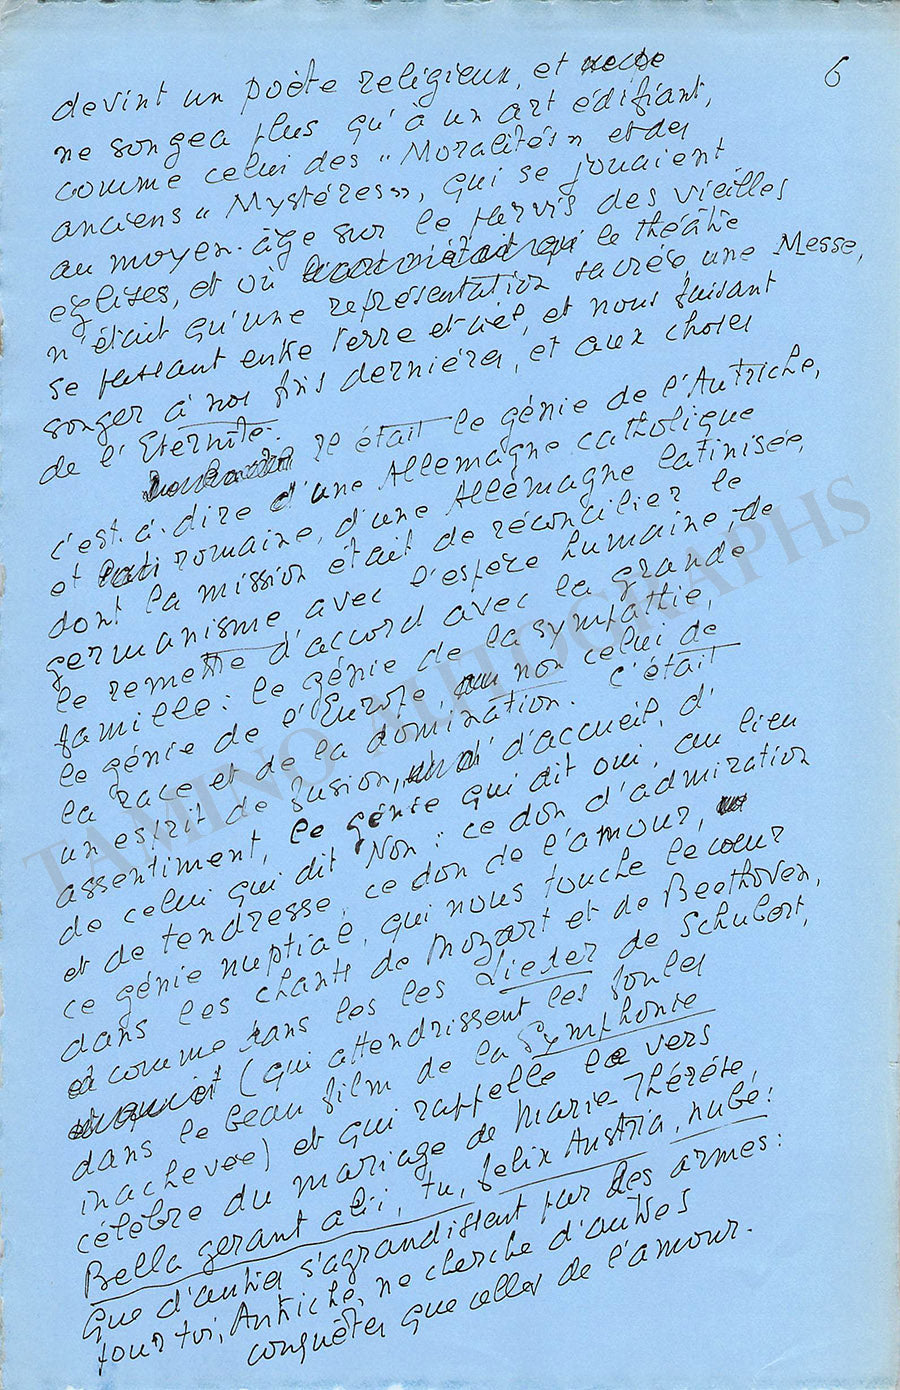 6
devint un poète religieux, et
ne songea plus qu'à un art édifiant,
comme celui des "Moralités" et des
anciens "Mystères", qui se jouaient
au moyen-âge sur le parvis des vieilles
églises, et où le théâtre
n'était qu'une représentation sacrée, une Messe,
se passant entre terre et ciel, et nous faisant
songer à nos fins dernières, et aux choses
de l'Eternité.
Tel était le génie de l'Autriche,
c'est-à-dire d'une Allemagne catholique
et romaine, d'une Allemagne latinisée,
dont la mission était de réconcilier le
germanisme avec l'espèce humaine, de
le remettre d'accord avec la grande
famille : le génie de la sympathie,
le génie de l'Europe non celui de
la race et de la domination. C'était
un esprit de fusion, d'accueil, d'
assentiment, le génie qui dit oui, au lieu
de celui qui dit Non : ce don d'admiration
et de tendresse, ce don de l'amour,
ce génie nuptial, qui nous touche le cœur
dans les chants de Mozart et de Beethoven,
et comme dans les les Lieder de Schubert,
(qui attendrissent les foules
dans le beau film de la Symphonie
inachevée) et qui rappelle le vers
célèbre du mariage de Marie Thérèse,
Bella gerant alii, tu, felix Austria, nube :
Que d'autres s'agrandissent par des armes :
pour toi, Autriche, ne cherche d'autres
conquêtes que celles de l'amour.
TAMINO AUTOGRAPHS